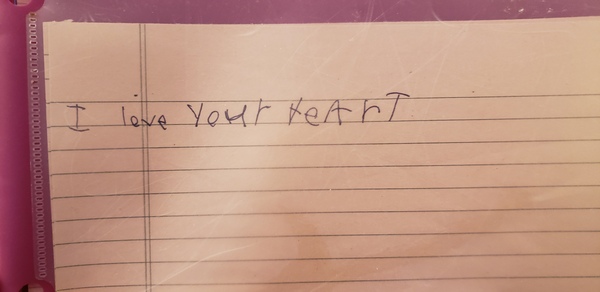 I love Your HeArT